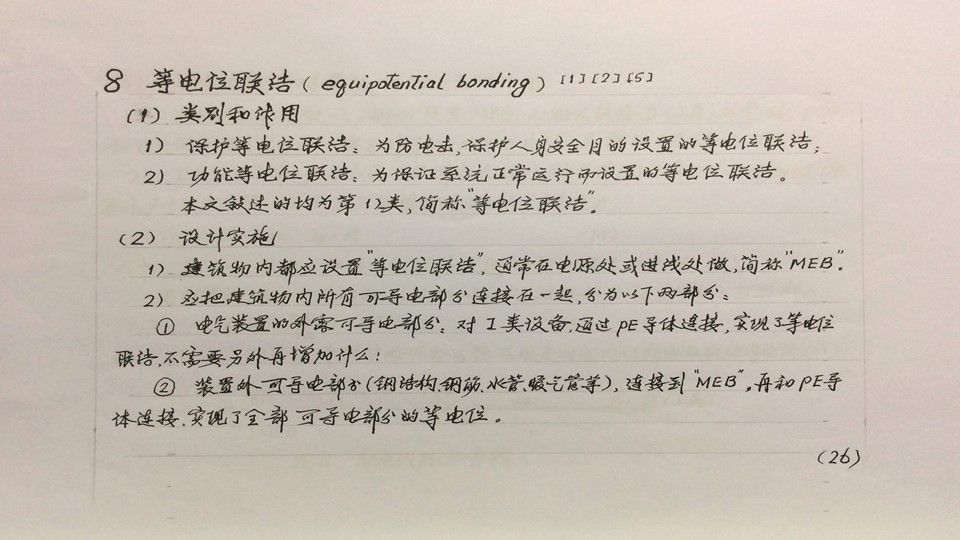 8 等电位联结(equipotential bonding)[1][2][5]
(1) 类别和作用
1) 保护等电位联结：为防电击,保护人身安全目的设置的等电位联结；
2) 功能等电位联结：为保证系统正常运行而设置的等电位联结。
本文叙述的均为第1)类,简称"等电位联结"。
(2) 设计实施
1) 建筑物内都应设置"等电位联结"，通常在电源处或进线处做,简称"MEB"。
2) 应把建筑物内所有可导电部分连接在一起,分为以下两部分：
① 电气装置的外露可导电部分：对I类设备,通过PE导体连接,实现了等电位
联结,不需要另外再增加什么！
② 装置外可导电部分(钢结构,钢筋,水管,暖气管等),连接到"MEB",再和PE导
体连接,实现了全部可导电部分的等电位。
(26)